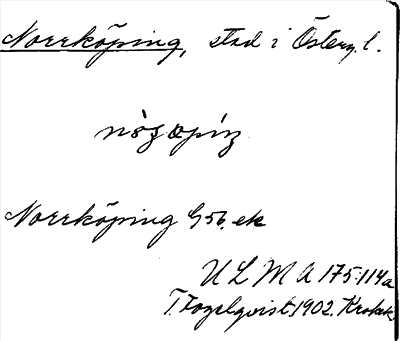 Norrköping, stad i Österg. l.
nòʒœpiŋ
Norrköping G56. ek
ULMA 175:114a
T. Fogelqvist 1902. Krokek